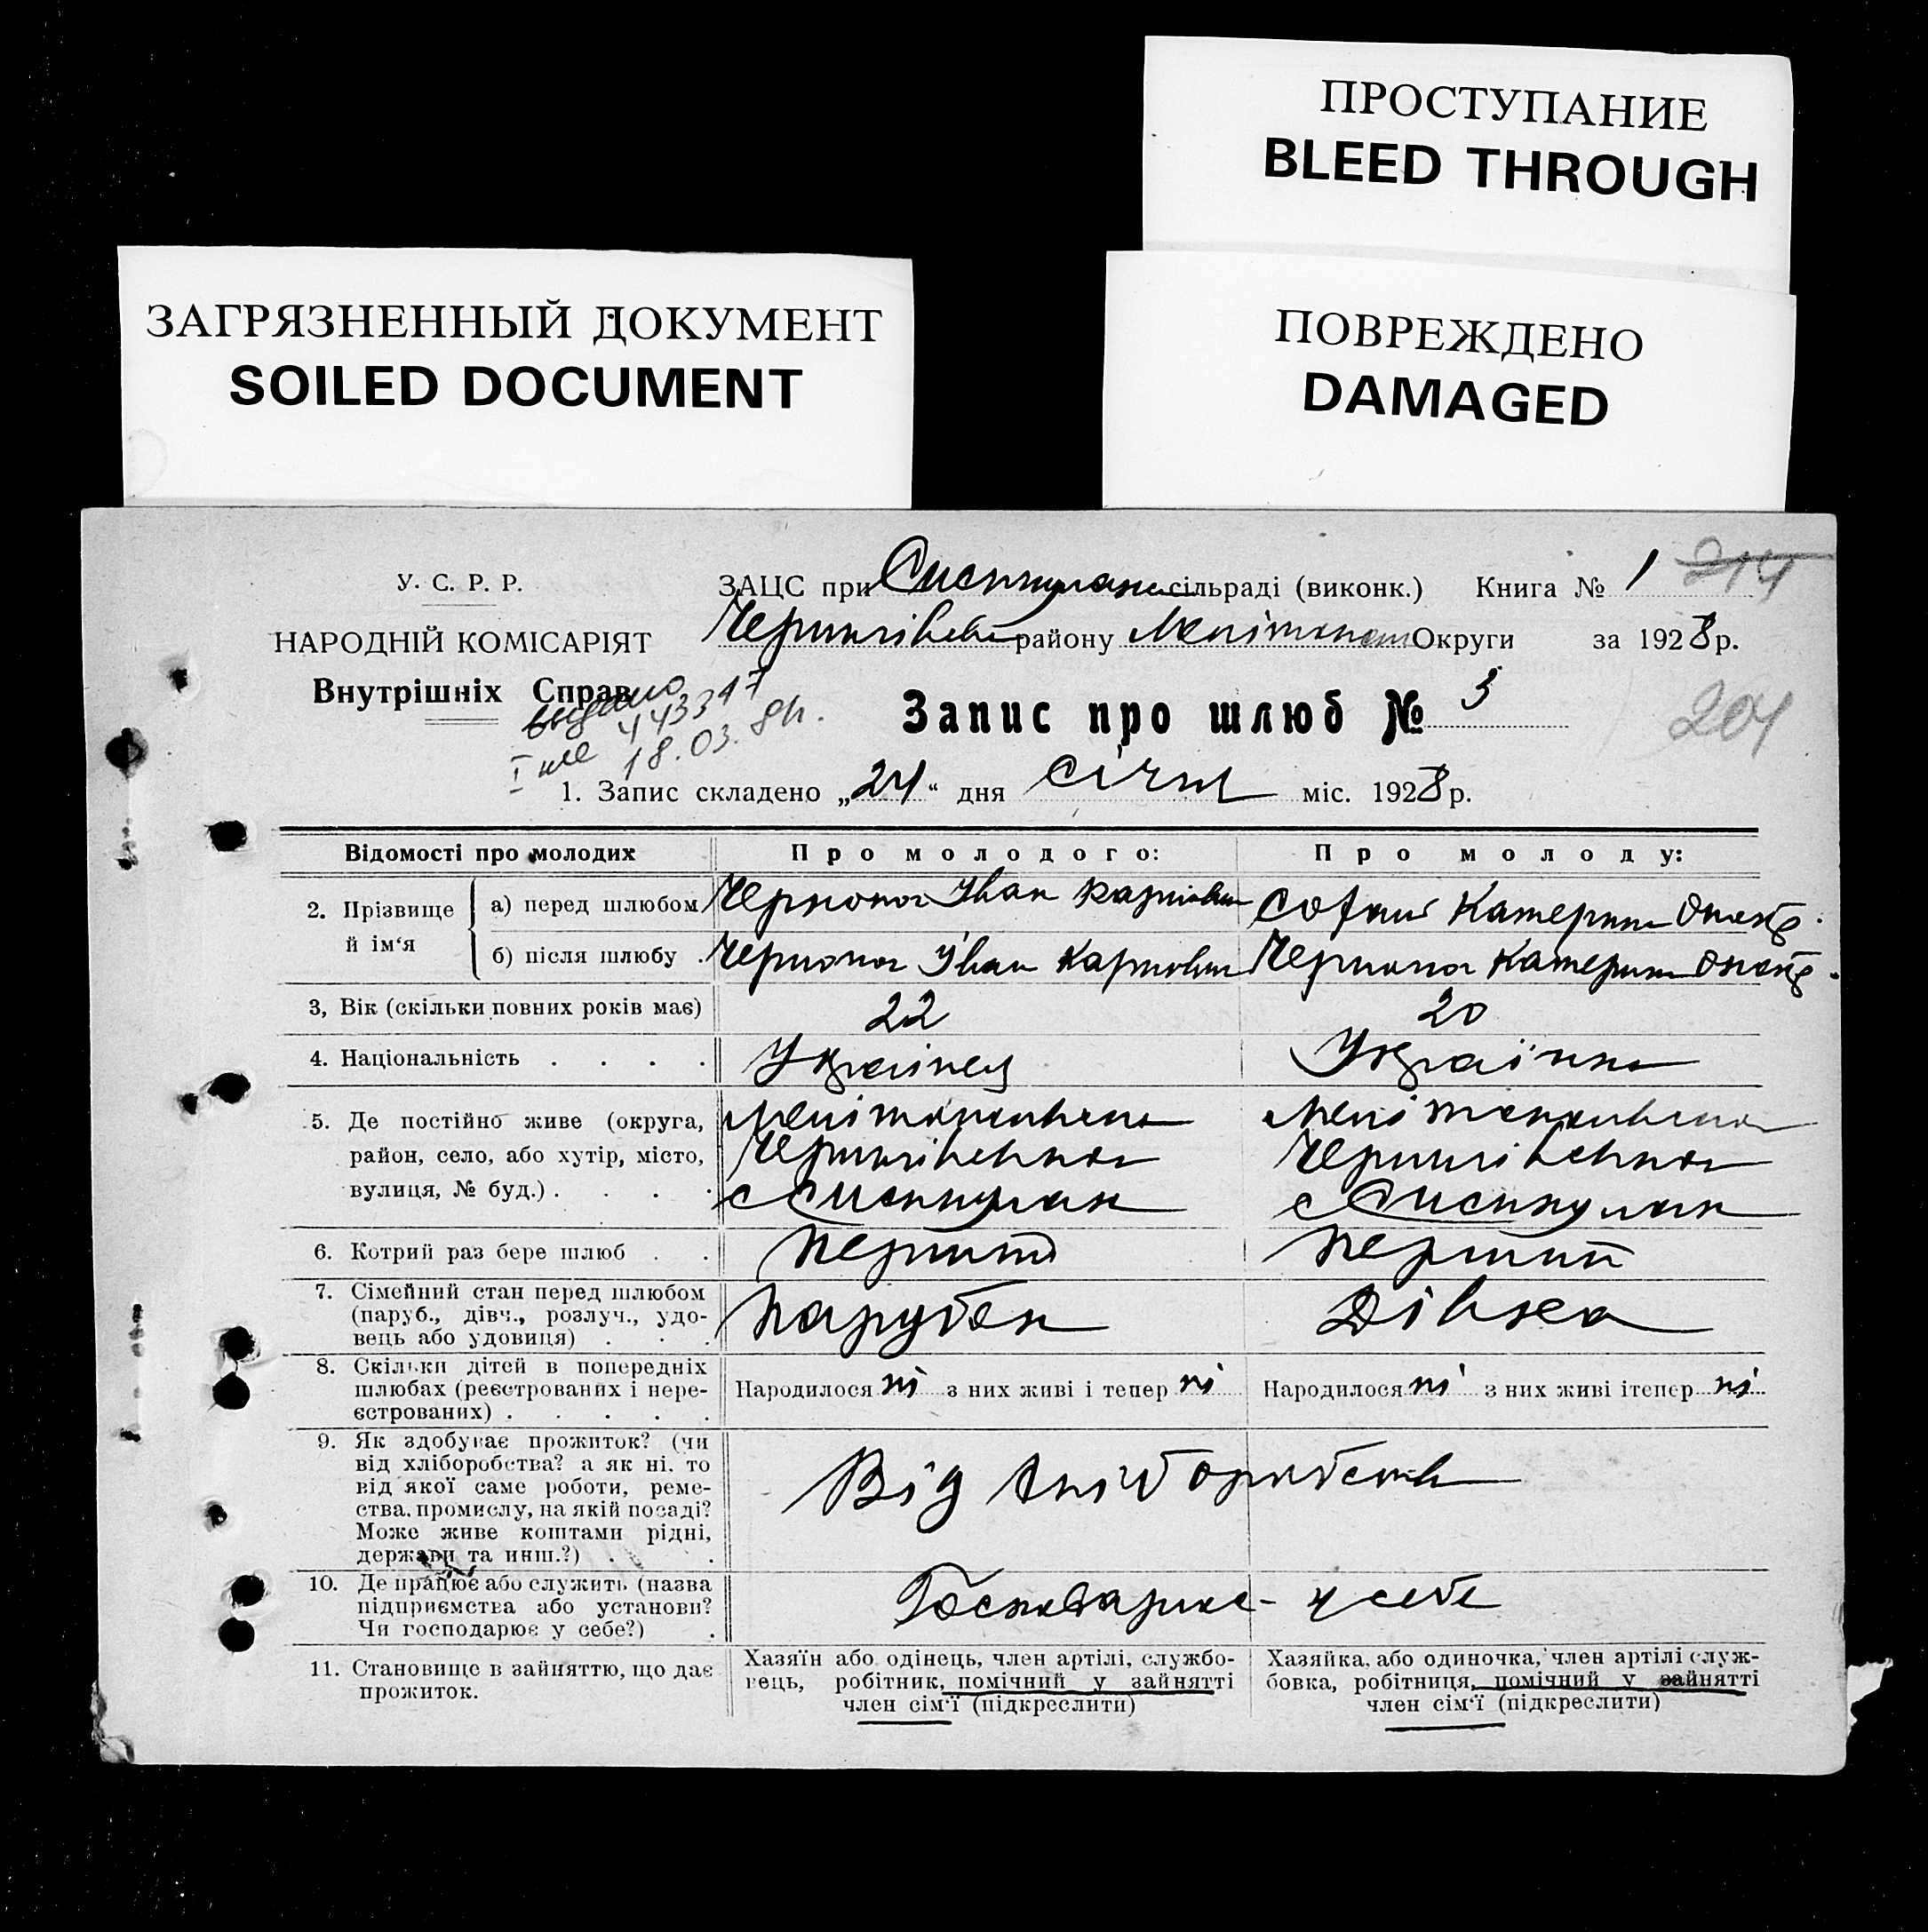 ПРОСТУПАНИЕ
BLEED THROUGH
ЗАГРЯЗНЕННЫЙ ДОКУМЕНТ
SOILED DOCUMENT
ПОВРЕЖДЕНО
DAMAGED
У. С. Р. Р.
НАРОДНІЙ КОМІСАРІЯТ
Внутрішніх Справ
ЗАЦС при сільраді (виконк.) Книга № 1 214
району Округи за 1928 р.
видано
443347
18.03.
Запис про шлюб № 3
204
1. Запис складено „24“ дня січня міс. 1928 р.
Відомості про молодих Про молодого: Про молоду:
2. Прізвище й ім‘я
а) перед шлюбом Іван Карпович Катерина
б) після шлюбу . Іван Карпович Катерина
3, Вік (скільки повних років має) 22 20
4. Національність . . . . Українец Українка
5. Де постійно живе (округа,
район, село, або хутір, місто,
вулиця, № буд.) . . . .
6. Котрий раз бере шлюб . . перший перший
7. Сімейний стан перед шлюбом
(паруб., дівч., розлуч., удо-
вець або удовиця) . . . Парубок Дівка
8. Скільки дітей в попередніх
шлюбах (реєстрованих і нере-
єстрованих) . . . . .
Народилося ні з них живі і тепер ні Народилося ні з них живі ітепер ні
9. Як здобуває прожиток? (чи
від хліборобства? а як ні. то
від якої саме роботи, реме-
ства. промислу, на якій посаді?
Може живе коштами рідні,
держави та инш.?) . .
Від хліборобства
10. Де працює або служить (назва
підприємства або установи?
Чи господарює у себе?) .
Господарює - у себе
11. Становище в зайняттю, що дає
прожиток.
Хазяїн або одінець, член артілі, службо-
вець, робітник, помічний у зайнятті
член сім‘ї (підкреслити)
Хазяйка, або одиночка, член артілі служ-
бовка, робітниця, помічний у зайнятті
член сім‘ї (підкреслити)